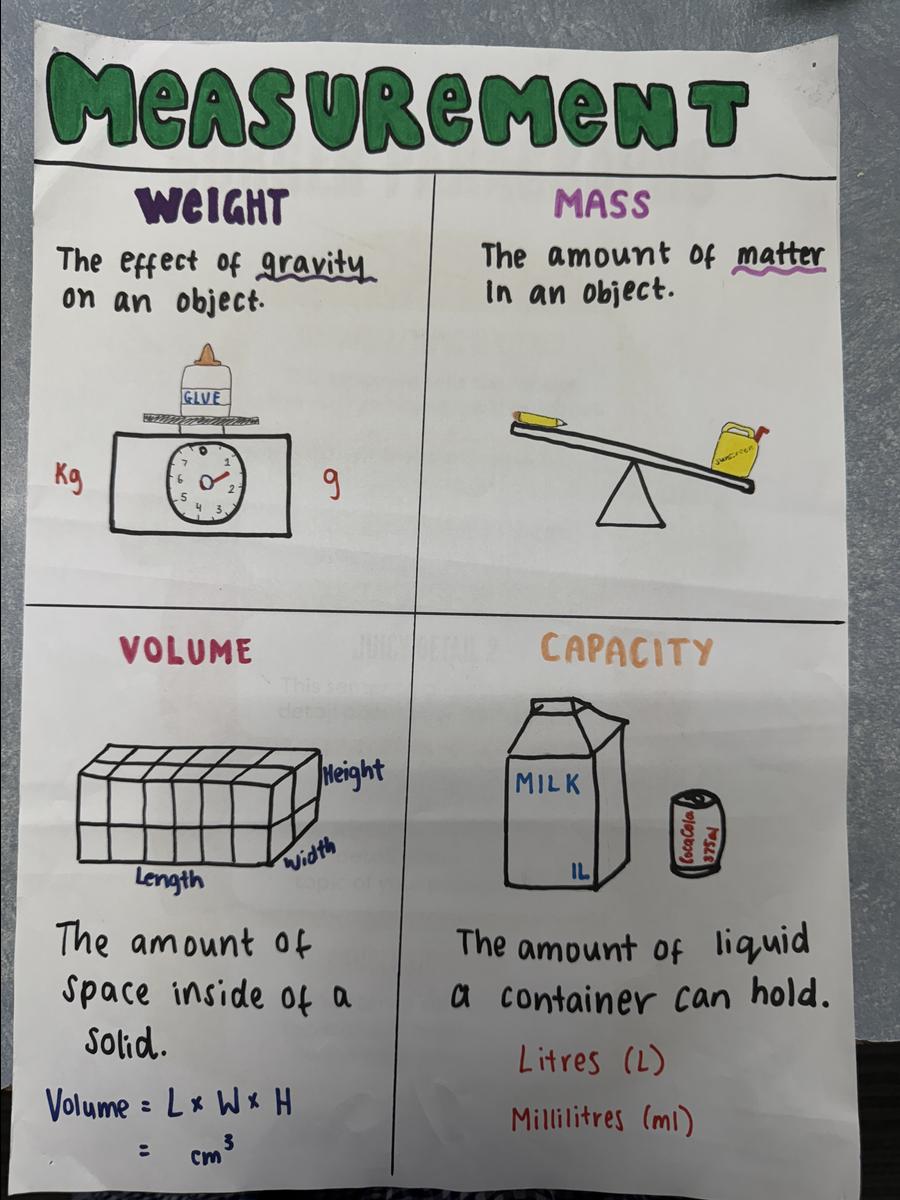 MEASUREMENT
WEIGHT
The effect of gravity
on an object.
GLUE
Kg
0
1
2
3
4
5
6
7
g
MASS
The amount of matter
in an object.
sunscreen
VOLUME
Height
Width
Length
The amount of
space inside of a
solid.
Volume = L x W x H
= cm³
CAPACITY
MILK
1L
CocaCola
375ml
The amount of liquid
a container can hold.
Litres (L)
Millilitres (ml)